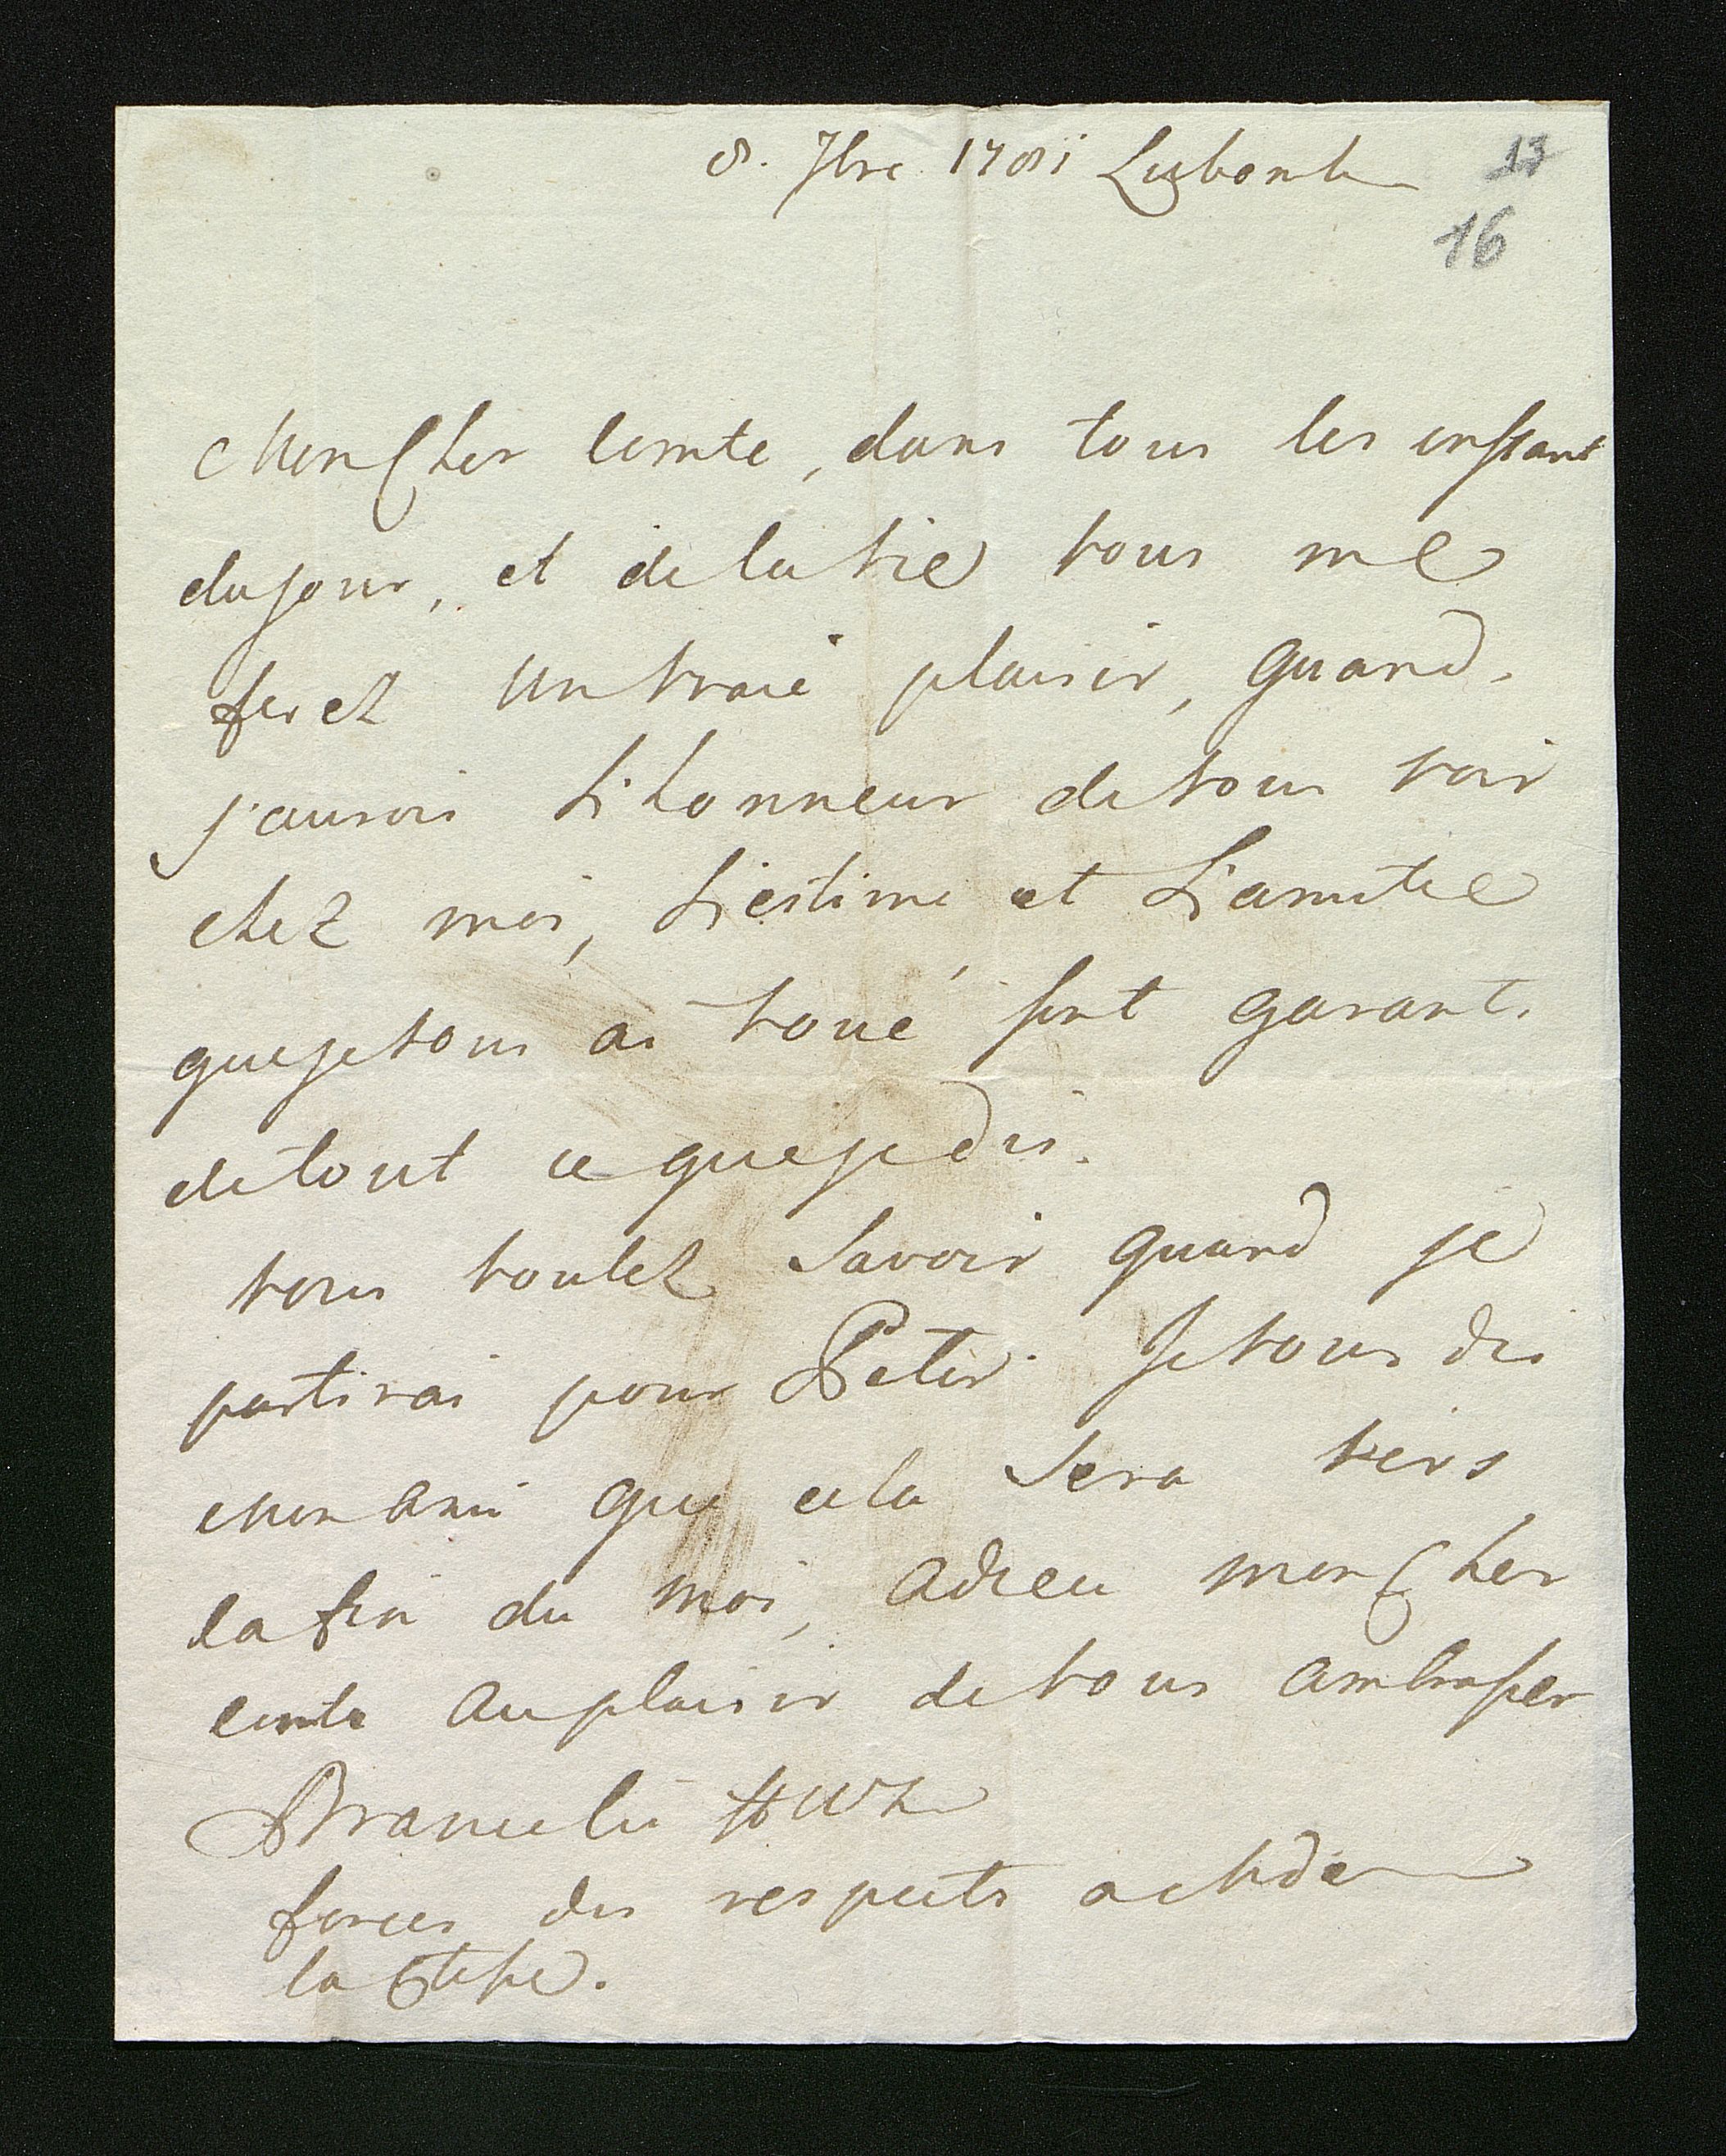 8. 7bre 1781 Luboml
13
16
Mon Cher Comte, dans tous les instant
du jour, et de la vie vous me
feréz un vraie plaisir, quand
j'aurois L'honneur de vous voir
chéz moi, L'estime et L'amitie
que je vous ai voué sont garants
de tout ce que je dis.
vous voulez Savoir quand je
partirai pour Peter. Je vous dis
Mon Ami que cela Sera vers
la fin du mois, Adieu mon Cher
Comte Au plaisir de vous Ambrasser
Branicki HWK
forces des respects a Mde
la Ctesse.